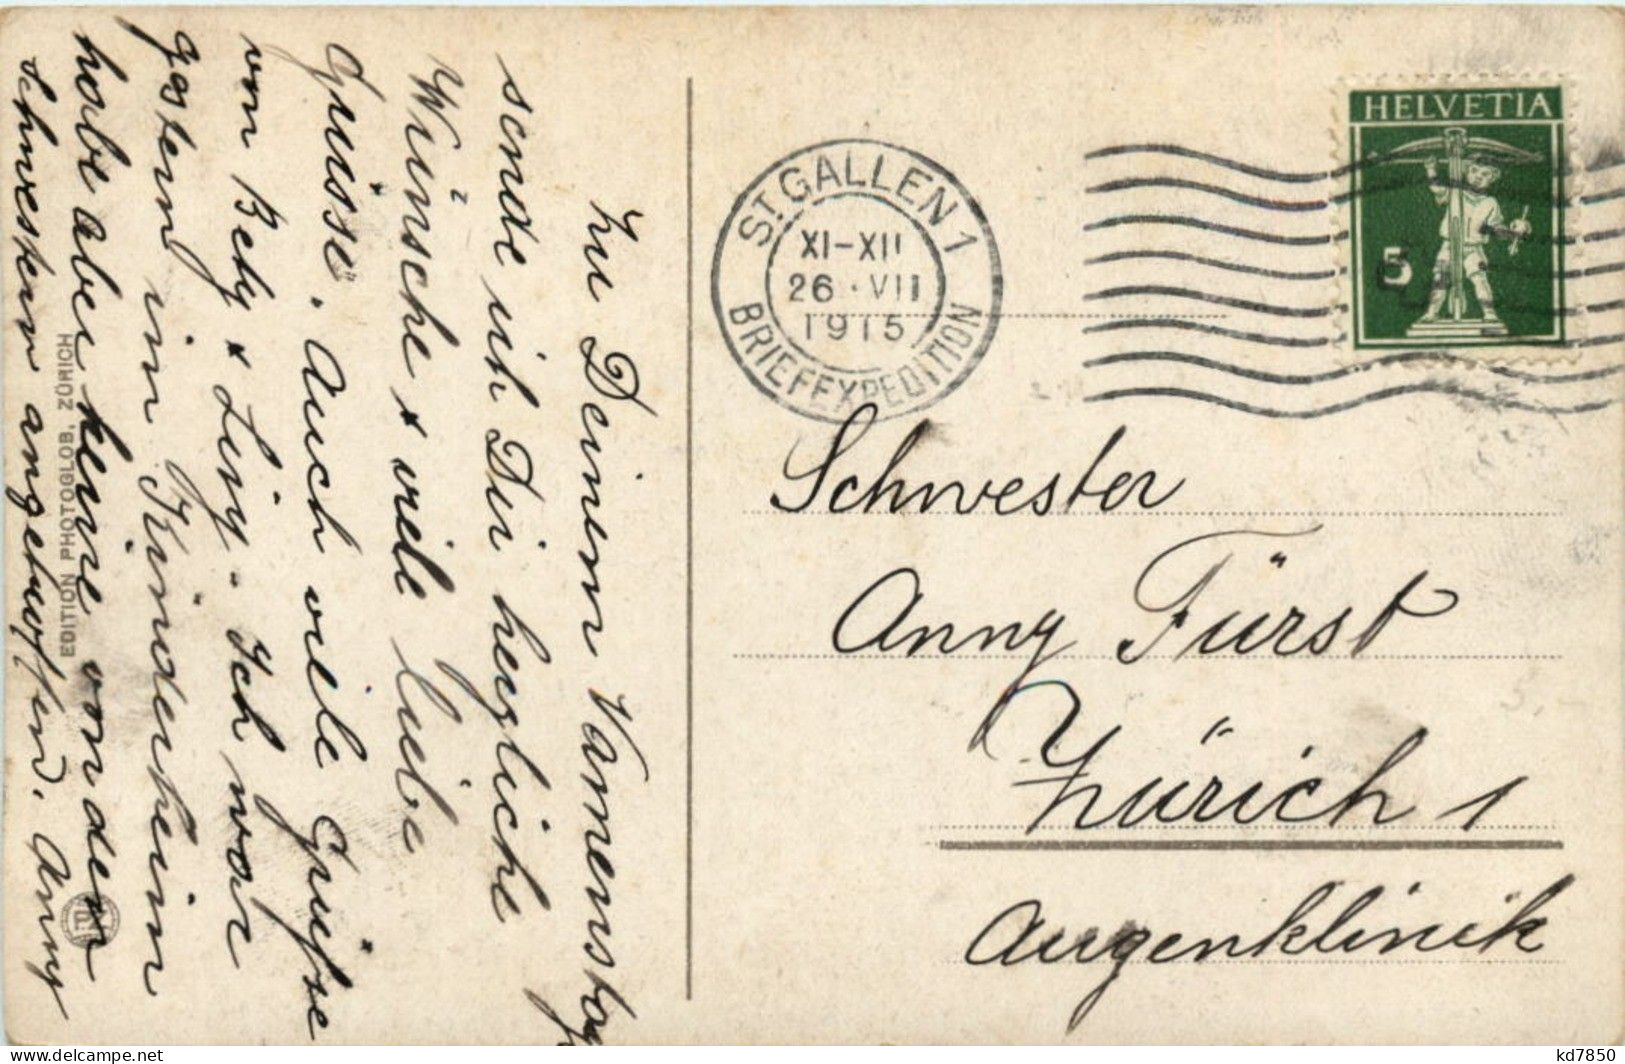 Zu Deinem Namenstag
sende ich Dir herzliche
Wünsche + viele liebe
Grüsse. Auch viele Grüsse
von Bety + Lisy. Ich war
gestern im Kinderheim
habe aber keine von den
Schwestern angetroffen. Anny
EDITION PHOTOGLOB, ZÜRICH
ST. GALLEN 1
XI-XII
26·VII
1915
BRIEFEXPEDITION
HELVETIA
5
Schwester
Anny Fürst
Zürich 1
Augenklinik
kd7850